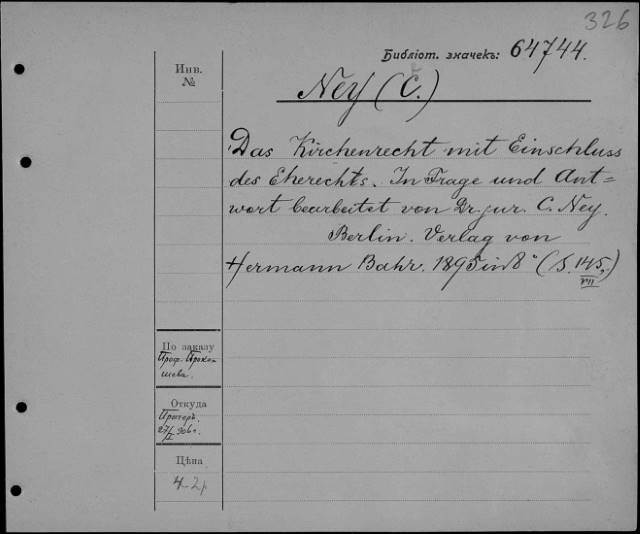 326
Библіот. значекъ: 64744.
Инв.
№
Ney (C.)
Das Kirchenrecht mit Einschluss
des Eherechts. In Frage und Ant=
wort bearbeitet von Dr. jur. C. Ney.
Berlin. Verlag von
Hermann Bahr. 1895 in 8° (S. 145,
VII)
По заказу
Проф. Проко-
шева.
Откуда
27/I 906 г.
Цѣна